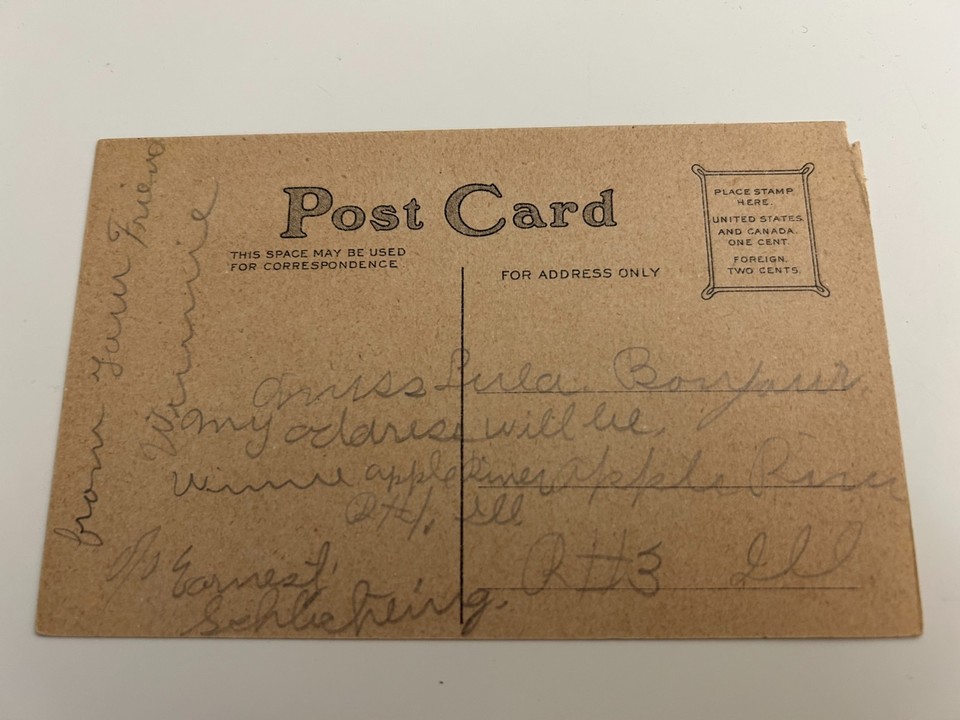 Post Card
THIS SPACE MAY BE USED
FOR CORRESPONDENCE
FOR ADDRESS ONLY
PLACE STAMP
HERE.
UNITED STATES
AND CANADA.
ONE CENT.
FOREIGN.
TWO CENTS.
from your Friend
Winnie
my addrise will be
Winnie apple River
R#1, Ill
Earnest
Miss Lula Bonjour
apple River
R#3 Ill